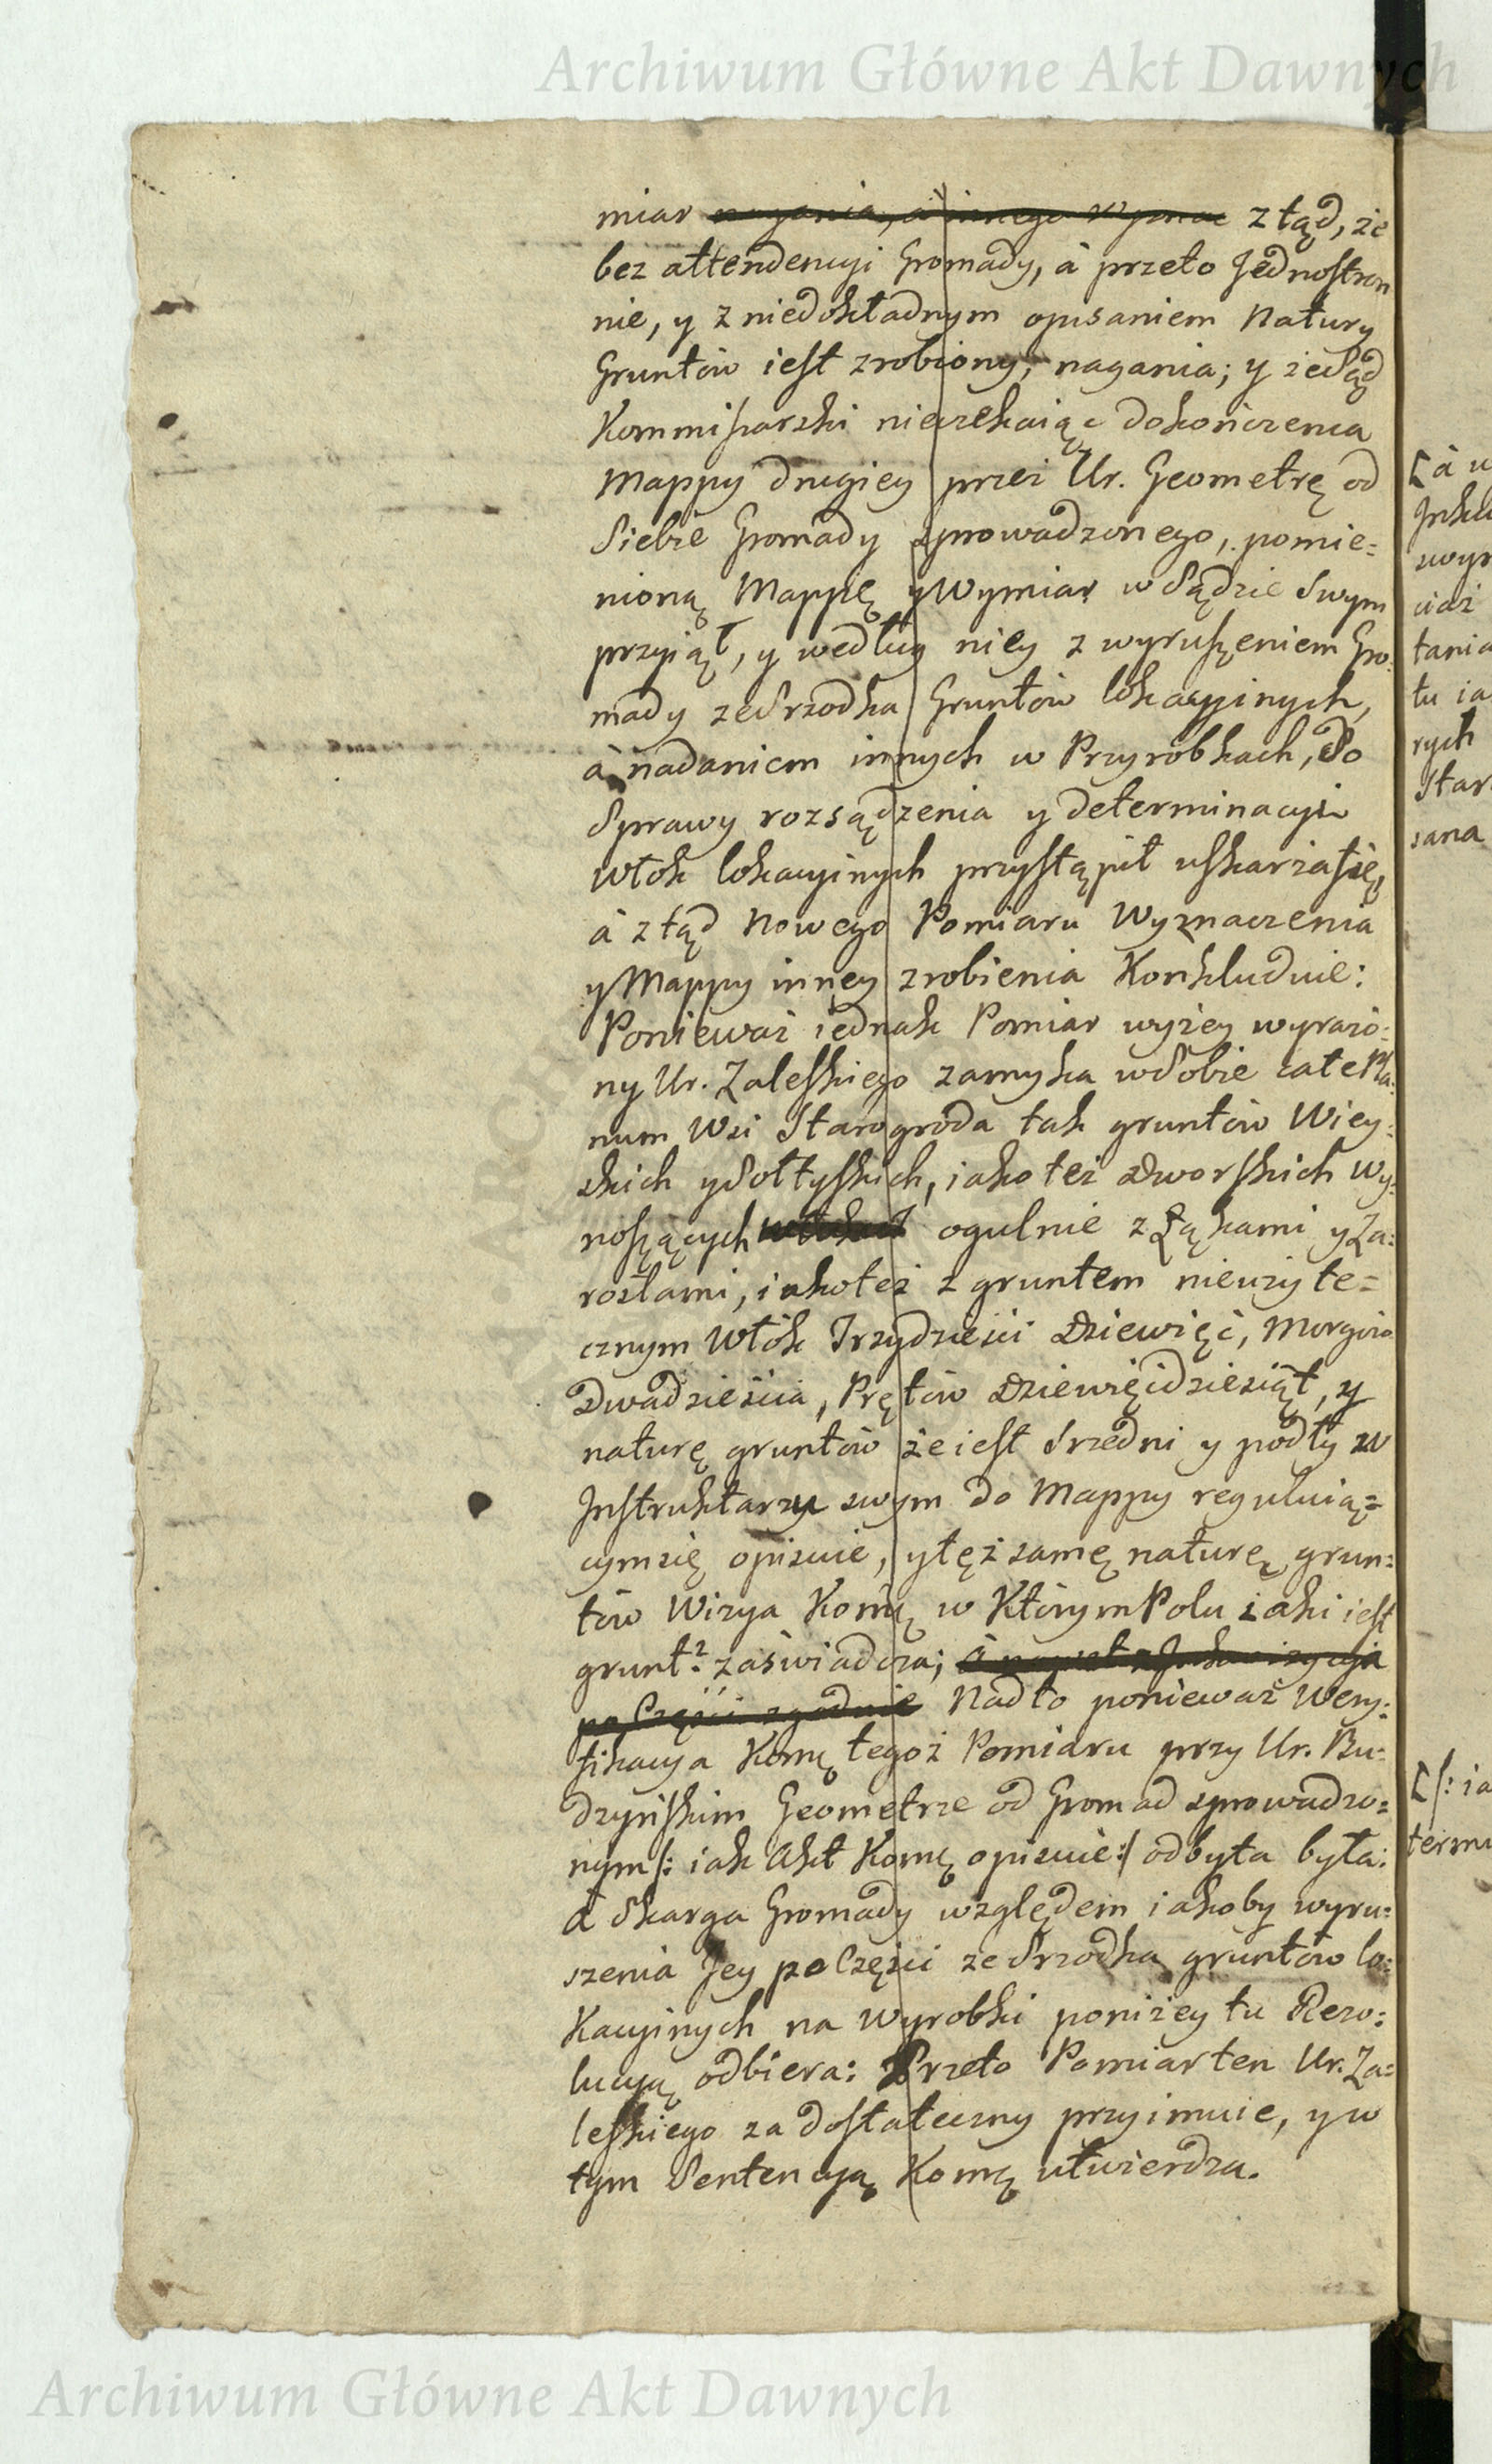 Archiwum Główne Akt Dawnych
miar nagania, a innego z tąd, że
bez attendencyi Gromady, à przeto Jednostron
nie, y z niedokładnym opisaniem Natury
Gruntów iest zrobiony, nagania; y że Sąd
Kommissarski nieczekaiąc dokończenia
Mappy drugiey przez Ur. Geometrę od
Siebie Gromady sprowadzonego, pomie=
nioną Mappę y Wymiar w Sądzie Swym
przyiął, y według niey z wyruszeniem Gro=
mady ze Srzodka Gruntów lokacyinych,
à nadaniem innych w Przyrobkach, do
Sprawy rozsądzenia y determinacyi
Włok lokacyinych przystąpił uskarza się,
à z tąd Nowego Pomiaru Wyznaczenia
y Mappy inney zrobienia Konkluduie:
Ponieważ iednak Pomiar wyżey wyrażo=
ny Ur. Zaleskiego zamyka w Sobie całe Pla=
num Wsi Starogroda tak gruntów Wiey=
skich y Sołtyskich, iako też Dworskich Wy=
noszących ogulnie z Łąkami y Za=
rosłami, iako też z gruntem nieużyte=
cznym Włók Trzydzieści Dziewięć, Morgów
Dwadzieścia, Prętów Dziewięćdziesiąt, y
naturę gruntów że iest Srzedni y podły w
Instruktarzu swym do Mappy reguluią=
cym się opisuie, y tęż samę naturę grun=
tów Wizya Komą w Którym Polu iaki iest
grunt. zaświadcza;
po Części zgodnie Nadto ponieważ Wery=
fikacya Komą tegoż Pomiaru przy Ur. Bu=
dzyńskim Geometrze od Gromad sprowadzo=
nym /: iak Akt Komą opisuie :/ odbyta była:
à Skarga Gromady względem iakoby wyru=
szenia Jey po Części ze Srzodka gruntów lo=
Kacyinych na Wyrobki poniżey tu Rezo=
lucyą odbiera: Przeto Pomiar ten Ur. Za=
leskiego za dostateczny przyimuie, y w
tym Sentencyą Komą utwierdza.
[à w
rych
Star
sana
[/: ia
Archiwum Główne Akt Dawnych